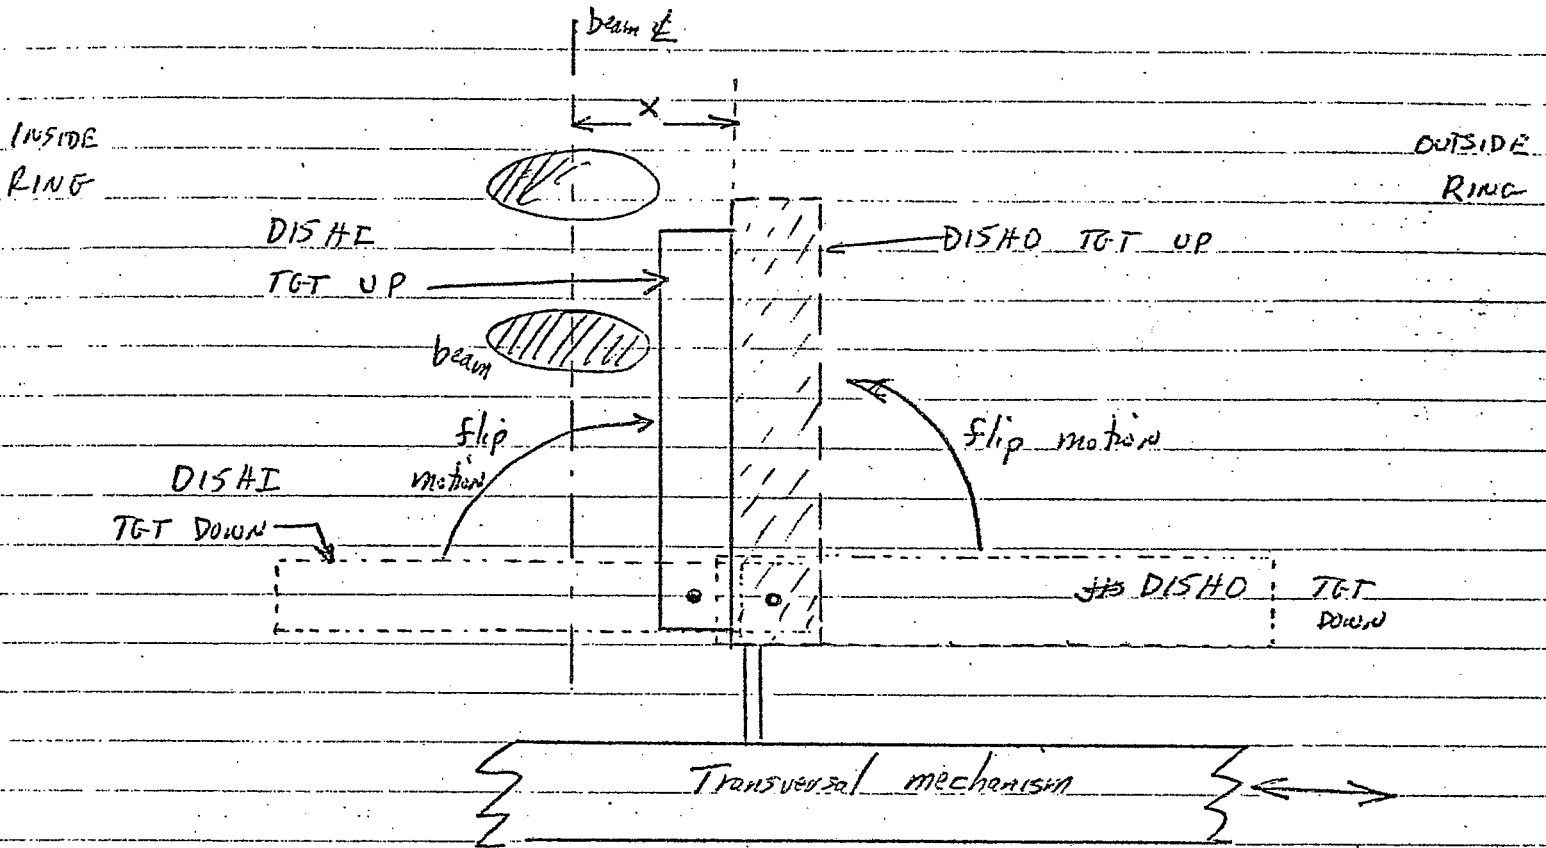 beam ℄
X
INSIDE
RING
OUTSIDE
RING
DISHI
TGT UP
DISHO TGT UP
beam
flip
motion
flip motion
DISHI
TGT DOWN
DISHO
TGT
DOWN
Transversal mechanism